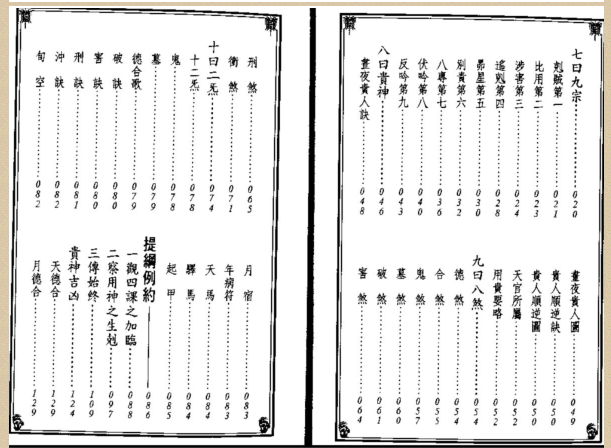 七曰九宗……020
剋賊第一……021
比用第二……023
涉害第三……024
遙剋第四……028
昴星第五……030
別責第六……032
八專第七……036
伏吟第八……040
反吟第九……043
八曰貴神……046
晝夜貴人訣……048
晝夜貴人圖……049
貴人順逆訣……050
貴人順逆圖……050
天官所屬……052
用貴要略……052
九曰八煞……054
德煞……054
合煞……055
鬼煞……057
墓煞……060
破煞……061
害煞……064
刑煞……065
衝煞……071
十曰二炁……074
十二炁……078
鬼……078
墓……079
德合歌……079
破訣……080
害訣……080
刑訣……081
沖訣……082
旬空……082
月宿……083
年病符……083
天馬……084
驛馬……084
起甲……085
提綱例約——086
一觀四課之加臨……088
二察用神之生剋……097
三傳始終……109
貴神吉凶……124
天德合……129
月德合……129